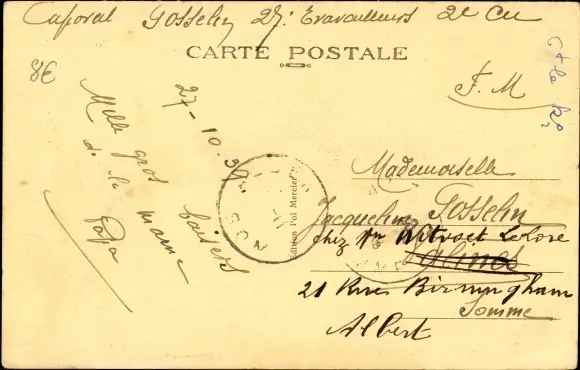 Caporal Gosselin 27e Travailleurs 2e Cie
CARTE POSTALE
8€
F. M
27-10.39
Mille gros baisers
de la marne
Papa
Edition Pol Mercier
Mademoiselle
Jacqueline Gosselin
chez Mr
Salines
21 Rue Birmingham
Somme
Albert